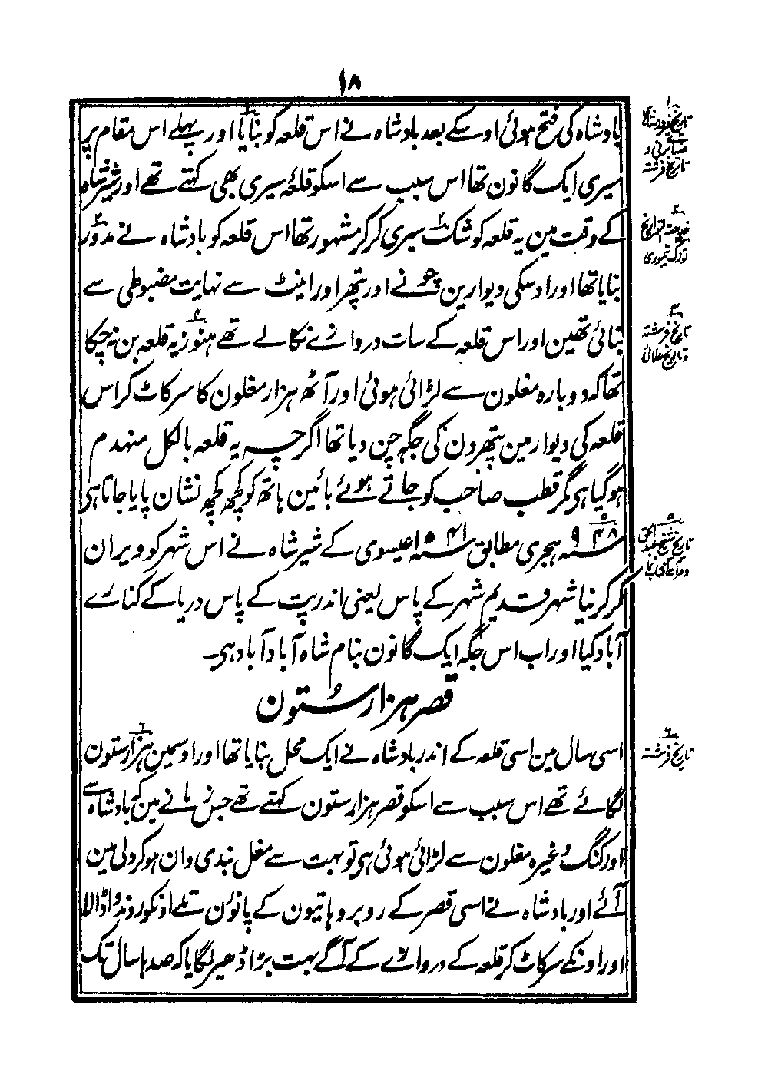 ۱۸
بادشاہ کی فتح ہوئی اوسکے بعد بادشاہ نے اس قلعہ کو بنایا اور پہلے اس مقام پر
سیری ایک گانون تھا اس سبب سے اسکو قلعہ سیری بھی کہتے تھے اور شیر شاہ
کے وقت مین یہ قلعہ کوشک سیری کر کر مشہور تھا اس قلعہ کو بادشاہ نے مدوّر
بنایا تھا اور اوسکی دیوارین چونے اور پتھر اور اینٹ سے نہایت مضبوطی سے
بنائی تھین اور اس قلعہ کے سات دروازے نکالے تھے ہنوز یہ قلعہ بن نہ چکا
تھا کہ دوبارہ مغلون سے لڑائی ہوئی اور آٹھ ہزار مغلون کا سر کاٹ کر اس
قلعہ کی دیوار مین پتھرون کی جگہ چن دیا تھا اگرچہ یہ قلعہ بالکل منہدم
ہو گیا ہی مگر قطب صاحب کو جاتے ہوئے بائین ہاتھ کو کچھ کچھ نشان پایا جاتا ہی
سنہ ۹۴۸ ہجری مطابق سنہ ۱۵۴۱ عیسوی کے شیر شاہ نے اس شہر کو ویران
کر کر نیا شہر قدیم شہر کے پاس یعنی اندرپت کے پاس دریا کے کنارے
آباد کیا اور اب اس جگہ ایک گانون بنام شاہ آباد آباد ہی۔
قصر ہزار ستون
اسی سال مین اسی قلعہ کے اندر بادشاہ نے ایک محل بنایا تھا اور اوسمین ہزار ستون
لگائے تھے اس سبب سے اسکو قصر ہزار ستون کہتے تھے جس زمانے مین کہ بادشاہ سے
اور کنگ وغیرہ مغلون سے لڑائی ہوئی ہی تو بہت سے مغل بندی وان ہو کر دلی مین
آئے اور بادشاہ نے اسی قصر کے روبرو ہاتیون کے پانؤن تلے اونکو روندوا ڈالا
اور اونکے سر کاٹ کر قلعہ کے دروازے کے آگے بہت بڑا ڈھیر لگایا کہ صدہا سال تک
تاریخ فرشتہ
تاریخ فرشتہ
تاریخ فرشتہ